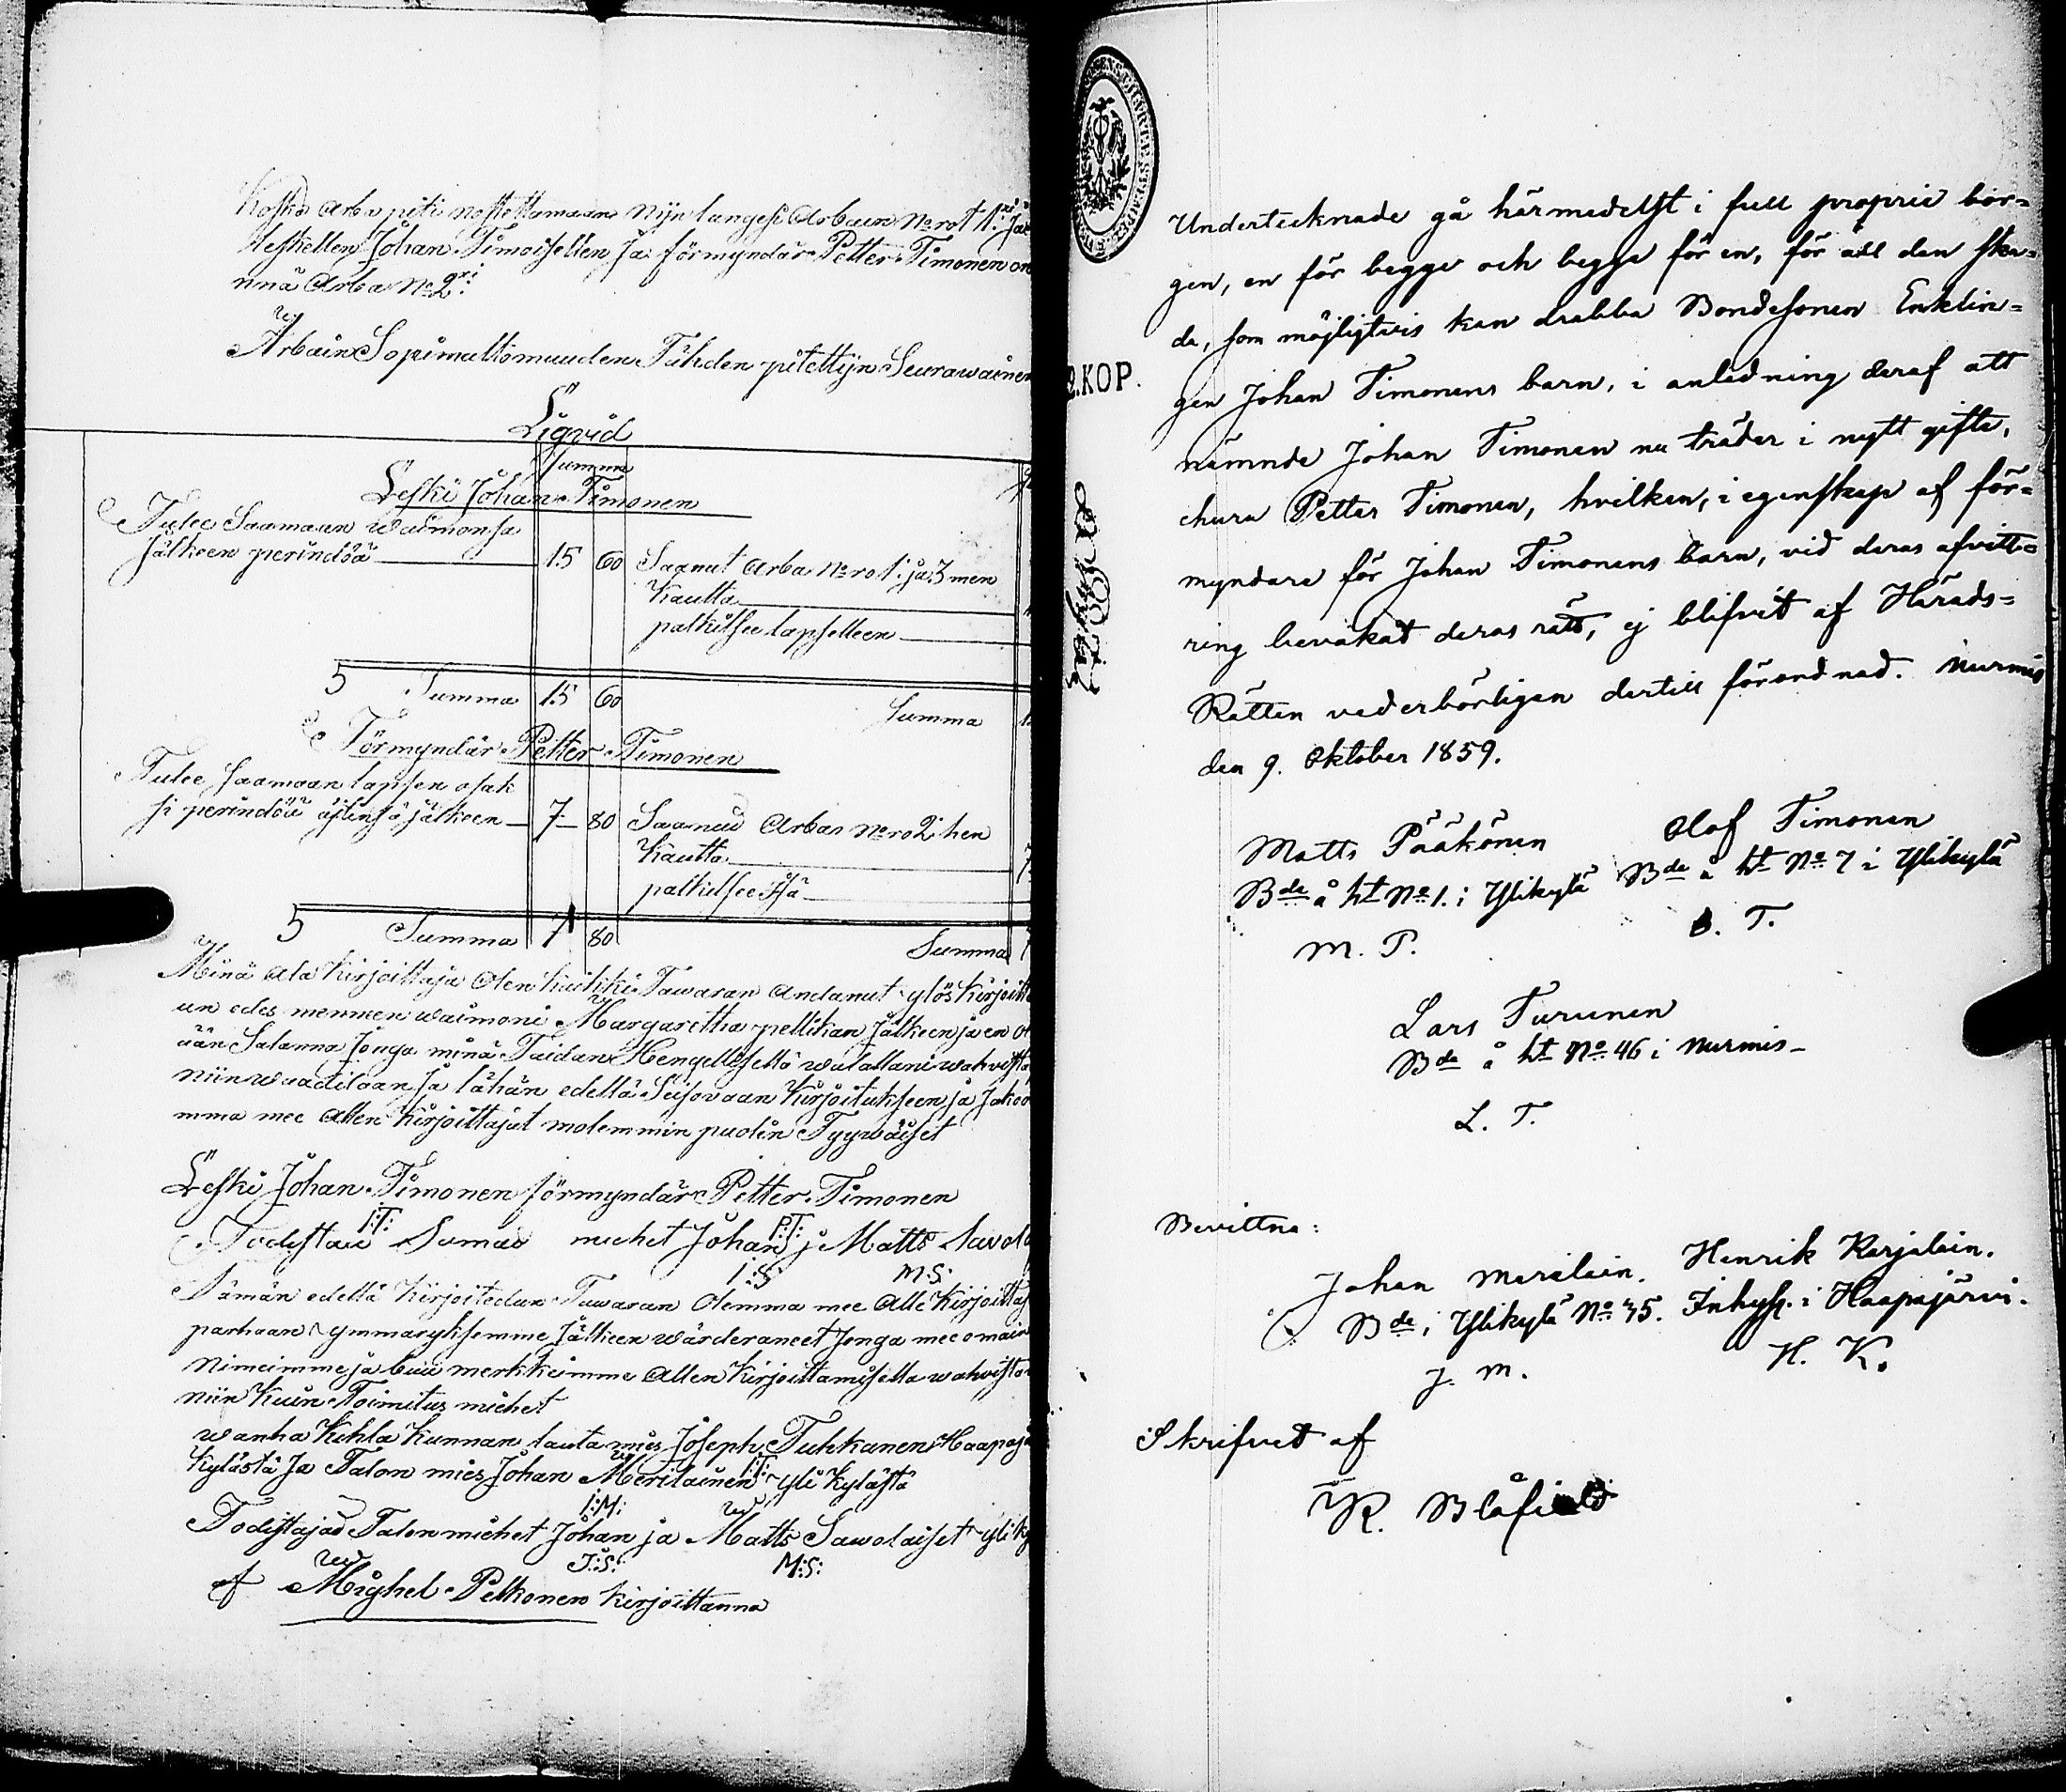 Koska Arba piti nostettamaan nijn langesi Arban No rot 1: Ja
leskellen Johan Timoiselle Ja förmyndär Petter Timonen on
nnä Arba No 2:
Arbain Sopimattomuuden Tähden pitettijn Seurawainen
Liqvid
Summa
Leski Johan Timonen
Tulee Saamaan waimonsa
jälkeen perindöä 15 60 Saanut Arba No ro 1: ja 3 men
Kautta
palkitsee lapselleen
5 Summa 15 60 Summa
Förmyndär Petter Timonen
Tulee saamaan lapsen osak
si perindöä äitinsä jälkeen 7 80 Saanud Arban No ro 2: hen
Kautta 7
palkitsee Isä
5 Summa 7 80 Summa
Minä ala kirjoittaja olen kaikki Tawaran andanut ylös kirjoitt
un edes mennen waimoni Margaretha pellikan Jälkeen ja en ol
ään Salanna Jonga minä Taidan Hengellisellä walallani wahvista
niin waaditaan Ja tähän edellä Seisovaan Kirjoitukseen ja Jakoo
mma mee Allen kirjoittajat molemmin puolin Tyywäiset
Leski Johan Timonen förmyndär Petter Timonen
I:T: P:T:
Todistaa Samas miehet Johan ja Matts Savola
I:S: M:S:
Tämän edellä kirjoitedun Tawaran Olemma mee Alle Kirjoittaj
parhaan ymmaryksemme Jälkeen wärderaneet Jonga mee omain
Nimeimme ja buu merkkeimme Allen kirjoittamisella wahvista
niin kuin Toimitus miehet
wanha Kihla kunnan lauta mies Joseph Tuhkanen Haapajä
I:T:
kylästä Ja Talon mies Johan Merilainen yli kylästä
I:M:
Todistajad Talon miehet Johan ja Matts Sawolaiset yli ky
J:S: M:S:
af Mighel Pelkonen kirjoittanna
2.KOP.
Undertecknade gå härmedelst i full proprie bor=
gen, en för begge och begge för en, för all den ska=
da, som möjligtvis kan drabba Bondesonen Enklin=
gen Johan Timonens barn, i anledning deraf att
nämnde Johan Timonen nu träder i nytt gifte,
ehuru Petter Timonen, hvilken, i egenskap af för=
myndare för Johan Timonens barn, vid deras afvitt=
ring bevakat deras rätt, ej blifvit af Härads=
Rätten vederbörligen dertill förordnad. Nurmis
den 9. Oktober 1859.
Matts Pääkönen Olof Timonen
Bde å ht No 1. i Ylikylä Bde å ht No 7 i Ylikylä
M. P. O. T.
Lars Turunen
Bde å ht No 46 i Nurmis
L. T.
Bevittna:
Johan Merilain. Henrik Karjalain.
Bde i Ylikylä No 45. Inhys. i Haapajärvi.
J. M. H. K.
Skrifvet af
K. Blåfield